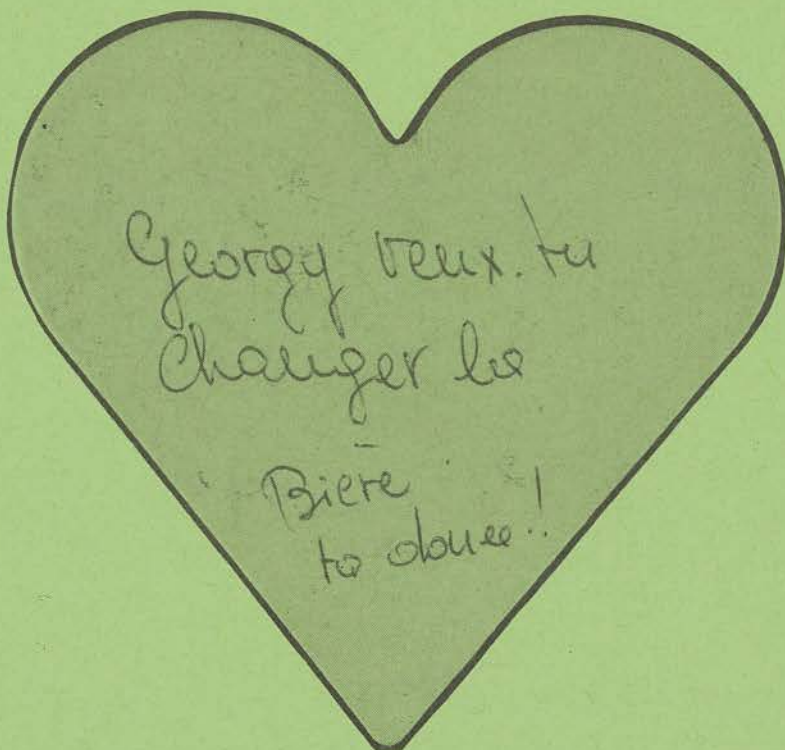 Georgy veux.tu
changer la
Bière
ta douce!